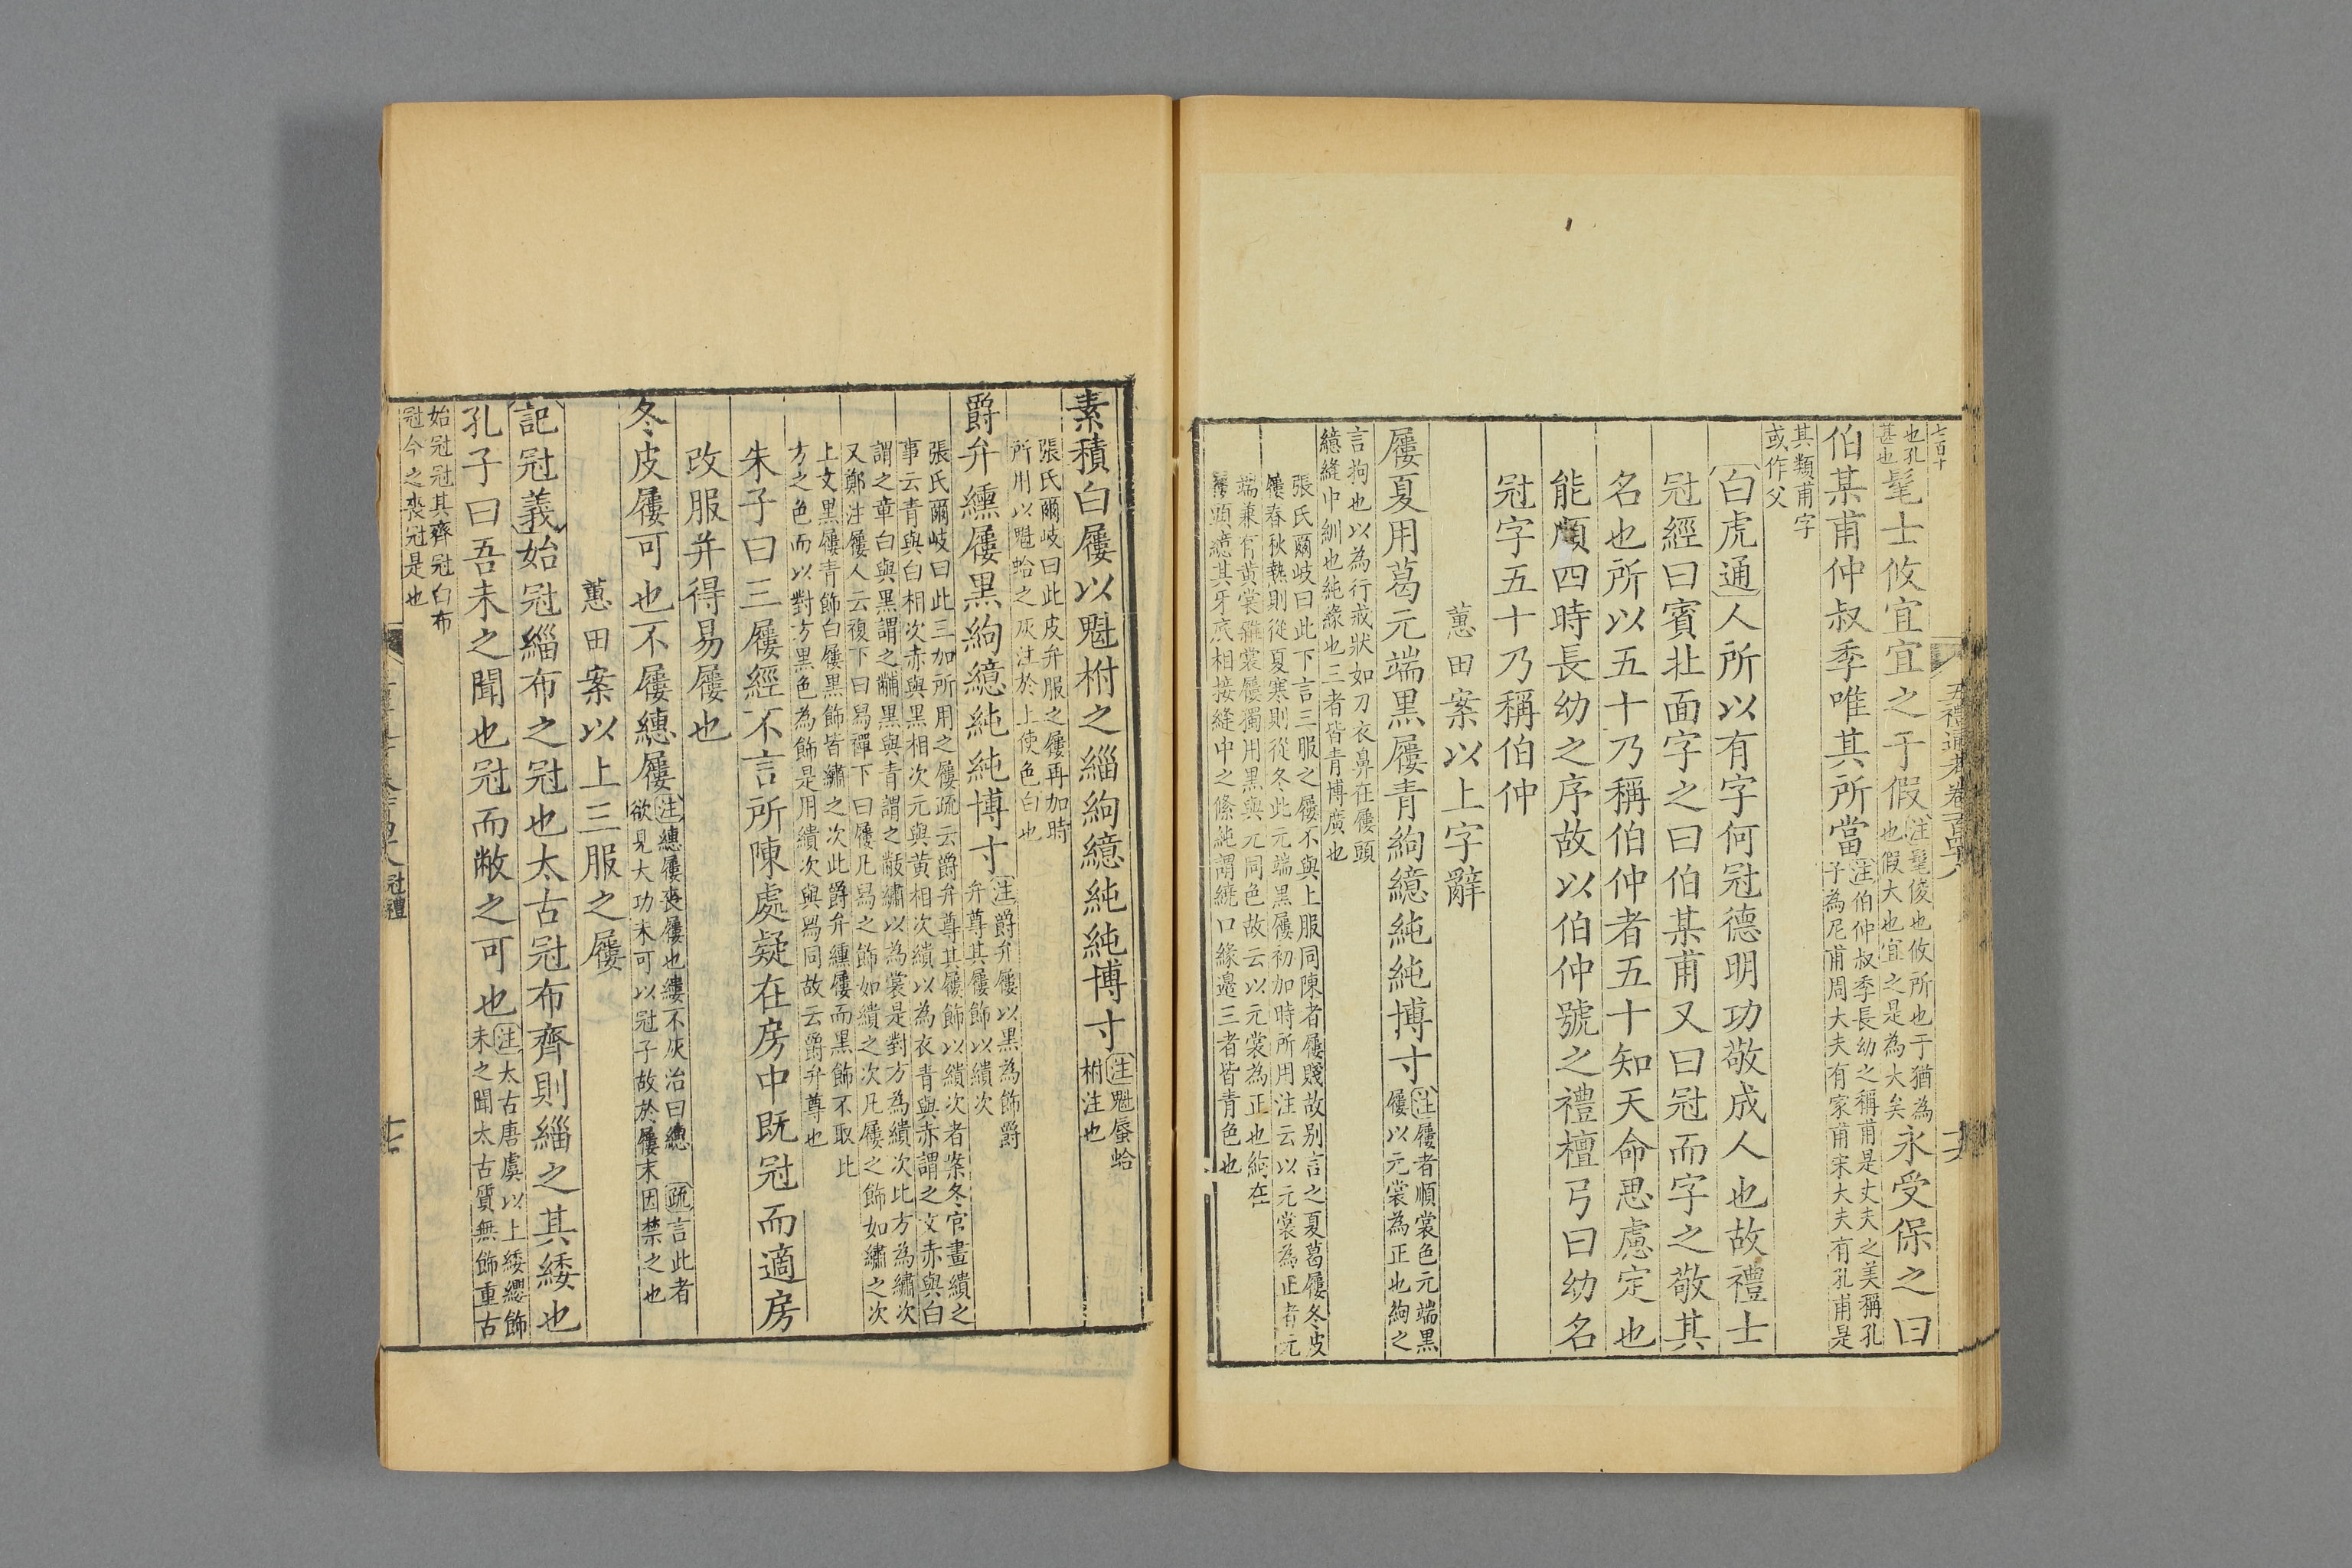 七百十
五禮通考卷一百四十八
十六
也孔甚也髦士攸宜宜之于假注髦俊也攸所也于猶為也假大也宜之是為大矣永受保之曰
伯某甫仲叔季唯其所當注伯仲叔季長幼之稱甫是丈夫之美稱孔子為尼甫周大夫有家甫宋大夫有孔甫是
其類甫字
或作父
白虎通人所以有字何冠德明功敬成人也故禮士
冠經曰賓北面字之曰伯某甫又曰冠而字之敬其
名也所以五十乃稱伯仲者五十知天命思慮定也
能順四時長幼之序故以伯仲號之禮檀弓曰幼名
冠字五十乃稱伯仲
蕙田案以上字辭
屨夏用葛元端黑屨青絇繶純純博寸注屨者順裳色元端黑屨以元裳為正也絇之
言拘也以為行戒狀如刀衣鼻在屨頭
繶縫中紃也純緣也三者皆青博廣也
張氏爾岐曰此下言三服之屨不與上服同陳者屨賤故别言之夏葛屨冬皮
屨春秋熱則從夏寒則從冬此元端黑屨初加時所用注云以元裳為正者元
端兼有黄裳雜裳屨獨用黑與元同色故云以元裳為正也絇在
屨頭繶其牙底相接縫中之絛純謂繞口緣邉三者皆青色也
素積白屨以魁柎之緇絇繶純純博寸注魁蜃蛤柎注也
張氏爾岐曰此皮弁服之屨再加時
所用以魁蛤之灰注於上使色白也
爵弁纁屨黑絇繶純純博寸注爵弁屨以黑為飾爵弁尊其屨飾以繢次
張氏爾岐曰此三加所用之屨疏云爵弁尊其屨飾以繢次者案冬官畫繢之
事云青與白相次赤與黑相次元與黄相次繢以為衣青與赤謂之文赤與白
謂之章白與黑謂之黼黑與青謂之黻繡以為裳是對方為繢次比方為繡次
又鄭注屨人云複下曰舄襌下曰屨凡舄之飾如繢之次凡屨之飾如繡之次
上文黑屨青飾白屨黑飾皆繡之次此爵弁纁屨而黑飾不取比
方之色而以對方黑色為飾是用繢次與舄同故云爵弁尊也
朱子曰三屨經不言所陳處疑在房中既冠而適房
改服并得易屨也
冬皮屨可也不屨繐屨注繐屨喪屨也縷不灰治曰繐 疏言此者欲見大功末可以冠子故於屨末因禁之也
蕙田案以上三服之屨
記冠義始冠緇布之冠也太古冠布齊則緇之其緌也
孔子曰吾未之聞也冠而敝之可也注太古唐虞以上緌纓飾未之聞太古質無飾重古
始冠冠其齊冠白布
冠今之喪冠是也
冠禮
十七